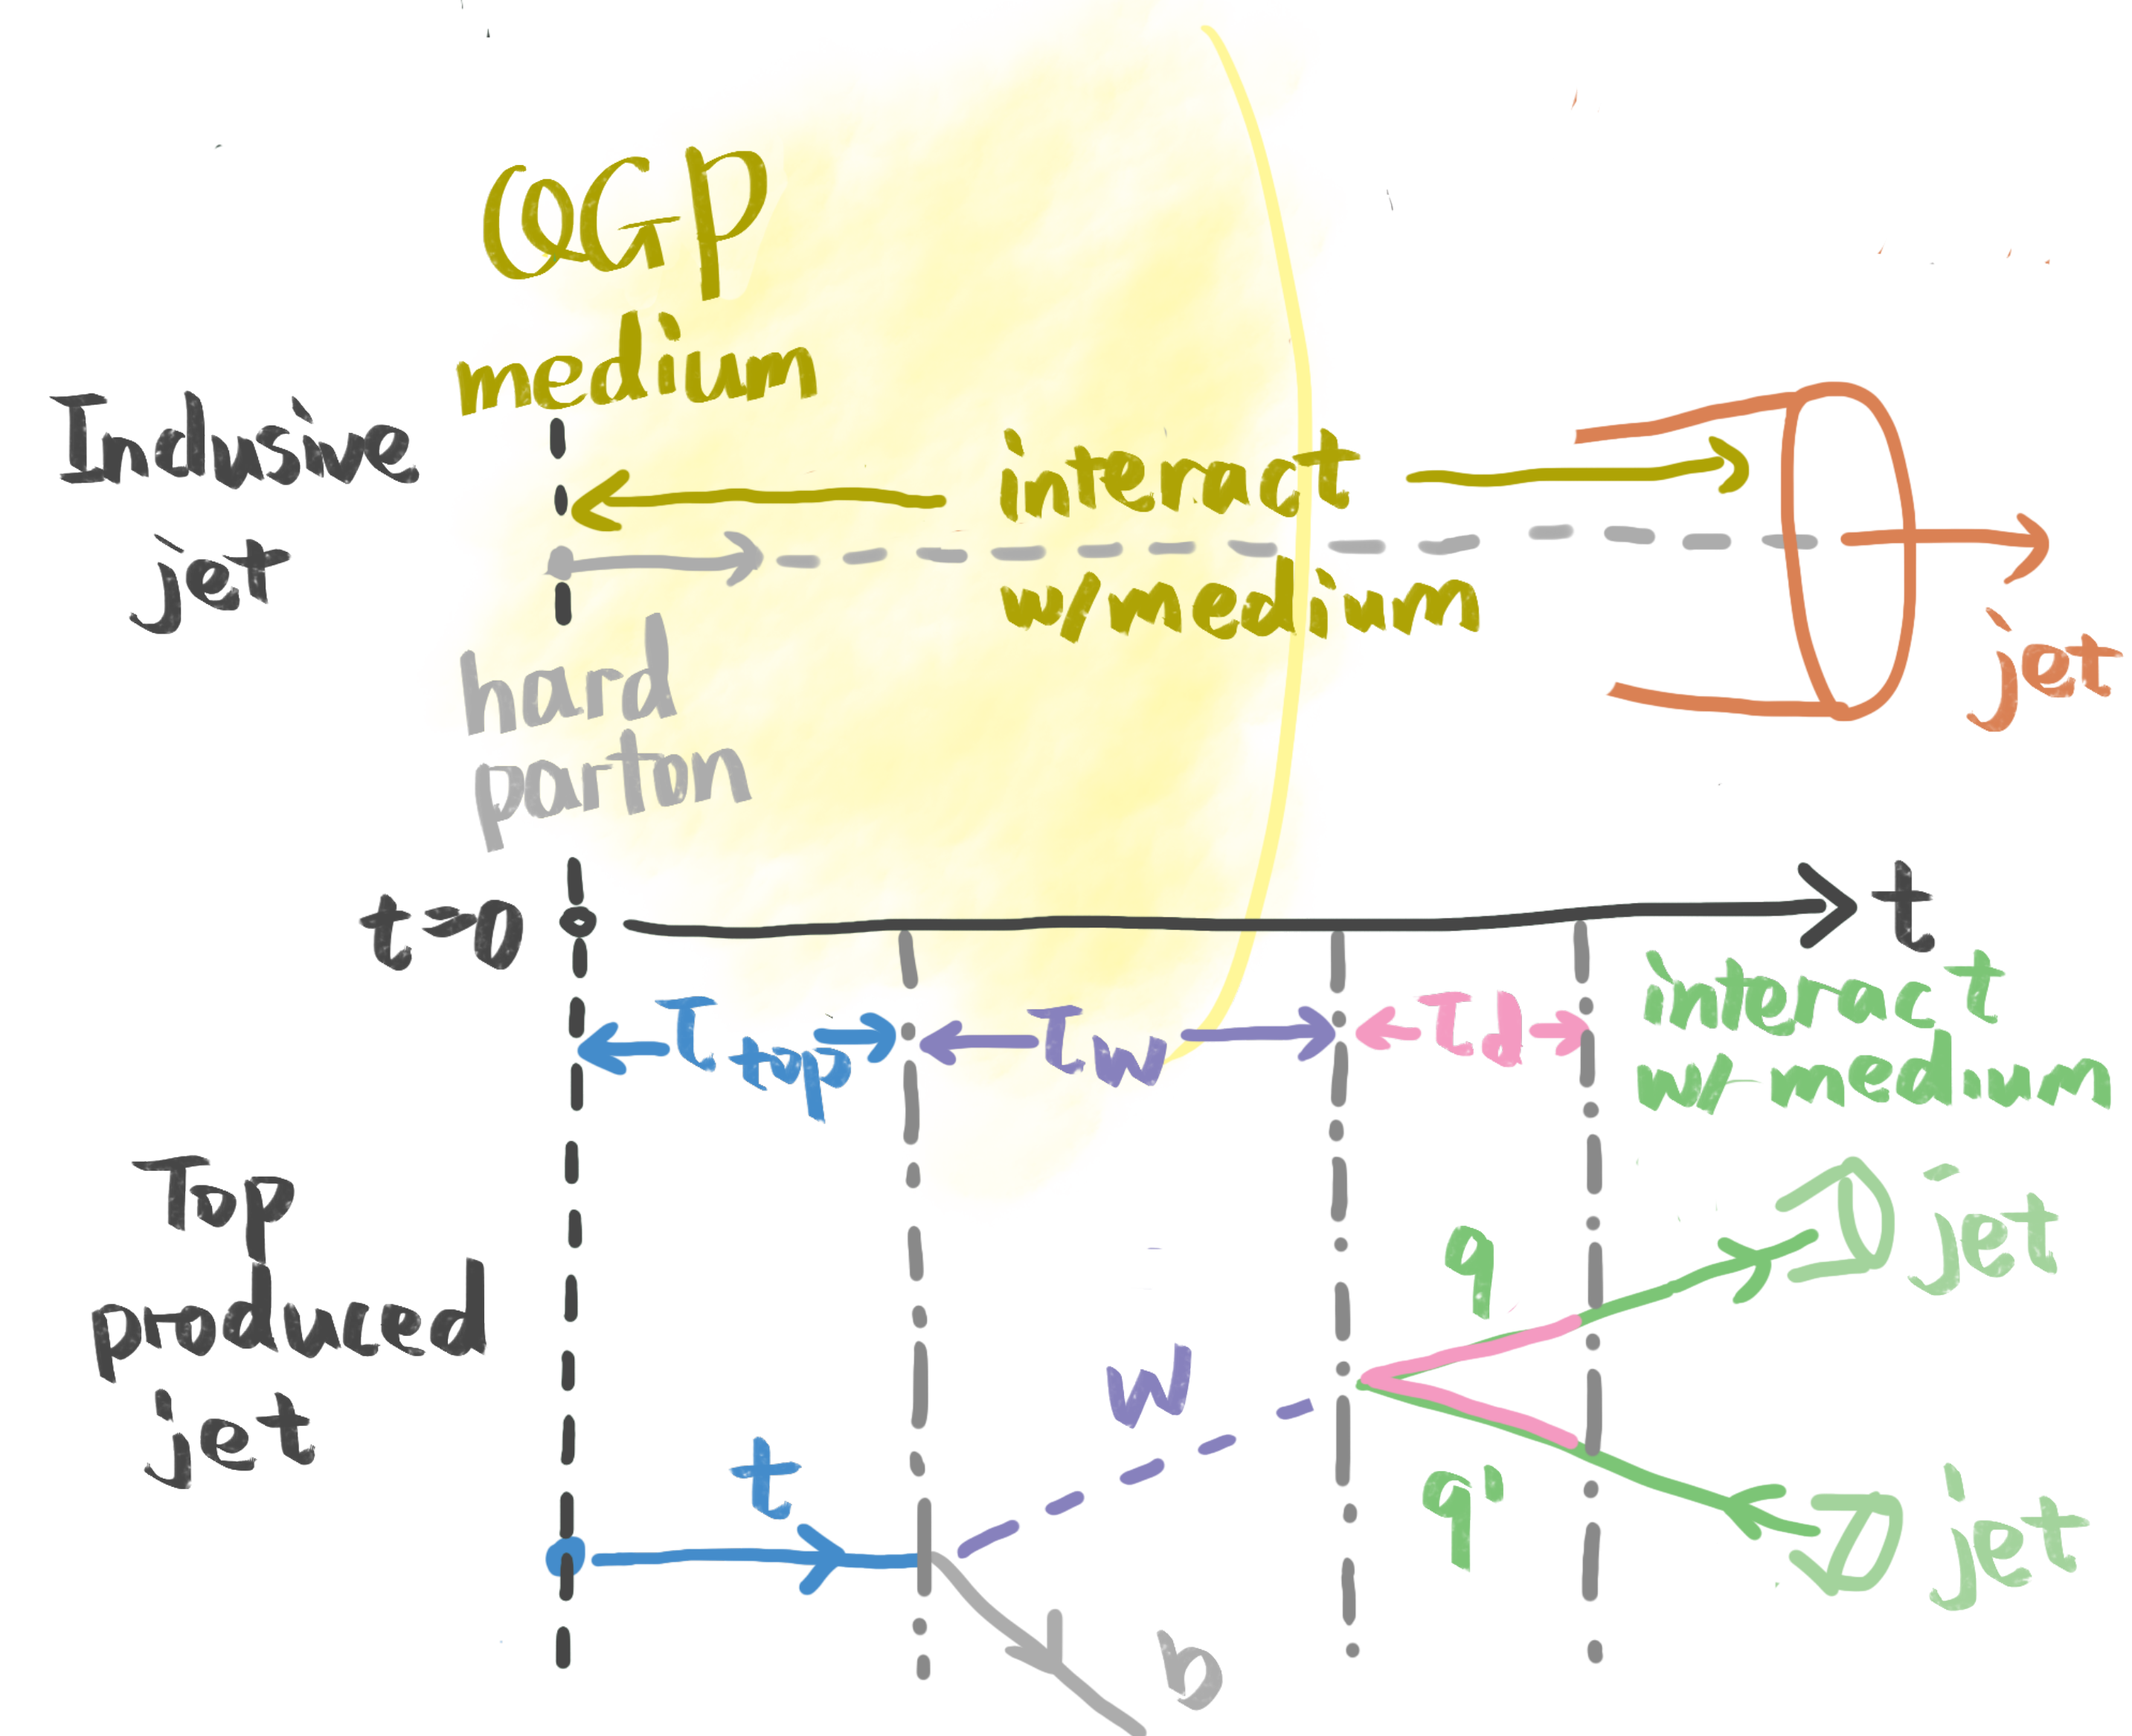 QGP
medium
Inclusive
jet
interact
w/medium
hard
parton
jet
t=0
t
τtop
τw
τd
interact
w/ medium
Top
produced
jet
t
W
b
q
q'
jet
jet